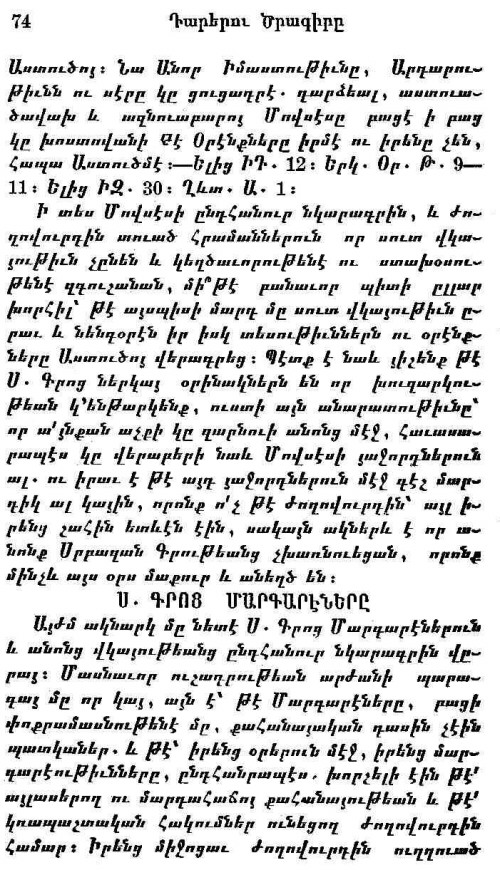 74 Դարերու Ծրագիրը
Աստուծոյ։ Նա Անոր Իմաստութիւնը, Արդարու-
թիւնն ու սէրը կը ցուցադրէ. դարձեալ, աստուա-
ծավախ և ազնուաբարոյ Մովսէսը բացէ ի բաց
կը խոստովանի թէ Օրէնքները իրմէ ու իրենը չեն,
Հապա Աստուծմէ։—Ելից ԻԴ. 12։ Երկ. Օր. Թ. 9—
11։ Ելից ԻԶ. 30։ Ղևտ. Ա. 1։
Ի տես Մովսէսի ընդհանուր նկարագրին, և ժո-
ղովուրդին տուած հրամաններուն որ սուտ վկա-
յութիւն չընեն և կեղծաւորութենէ ու ստախօսու-
թենէ զգուշանան, մի՞թէ բանաւոր պիտի ըլլար
խորհիլ՝ թէ այսպիսի մարդ մը սուտ վկայութիւն ը-
րաւ և նենգօրէն իր իսկ տեսութիւններն ու օրէնք-
ները Աստուծոյ վերագրեց։ Պէտք է նաև յիշենք թէ
Ս. Գրոց ներկայ օրինակներն են որ խուզարկու-
թեան կ՚ենթարկենք, ուստի այն անարատութիւնը՝
որ ա՛յնքան աչքի կը զարնուի անոնց մէջ, հաւասա-
րապէս կը վերաբերի նաև Մովսէսի յաջորդներուն
ալ. ու իրաւ է թէ այդ յաջորդներուն մէջ գէշ մար-
դիկ ալ կային, որոնք ո՛չ թէ ժողովուրդին՝ այլ ի-
րենց շահին ետևէն էին, սակայն ակներև է որ ա-
նոնք Սրբազան Գրութեանց չխառնուեցան, որոնք
մինչև այս օրս մաքուր և անեղծ են։
Ս. ԳՐՈՑ ՄԱՐԳԱՐԷՆԵՐԸ
Այժմ ակնարկ մը նետէ Ս. Գրոց Մարգարէներուն
և անոնց վկայութեանց ընդհանուր նկարագրին վը-
րայ։ Մասնաւոր ուշադրութեան արժանի պարա-
գայ մը որ կայ, այն է՝ թէ Մարգարէները, բացի
փոքրամասնութենէ մը, քահանայական դասին չէին
պատկաներ. և թէ՝ իրենց օրերուն մէջ, իրենց մար-
գարէութիւնները, ընդհանրապէս. խորշելի էին թէ՛
այլասերող ու մարդահաճոյ քահանայութեան և թէ՛
կռապաշտական հակումներ ունեցող ժողովուրդին
համար։ Իրենց միջոցաւ ժողովուրդին ուղղուած